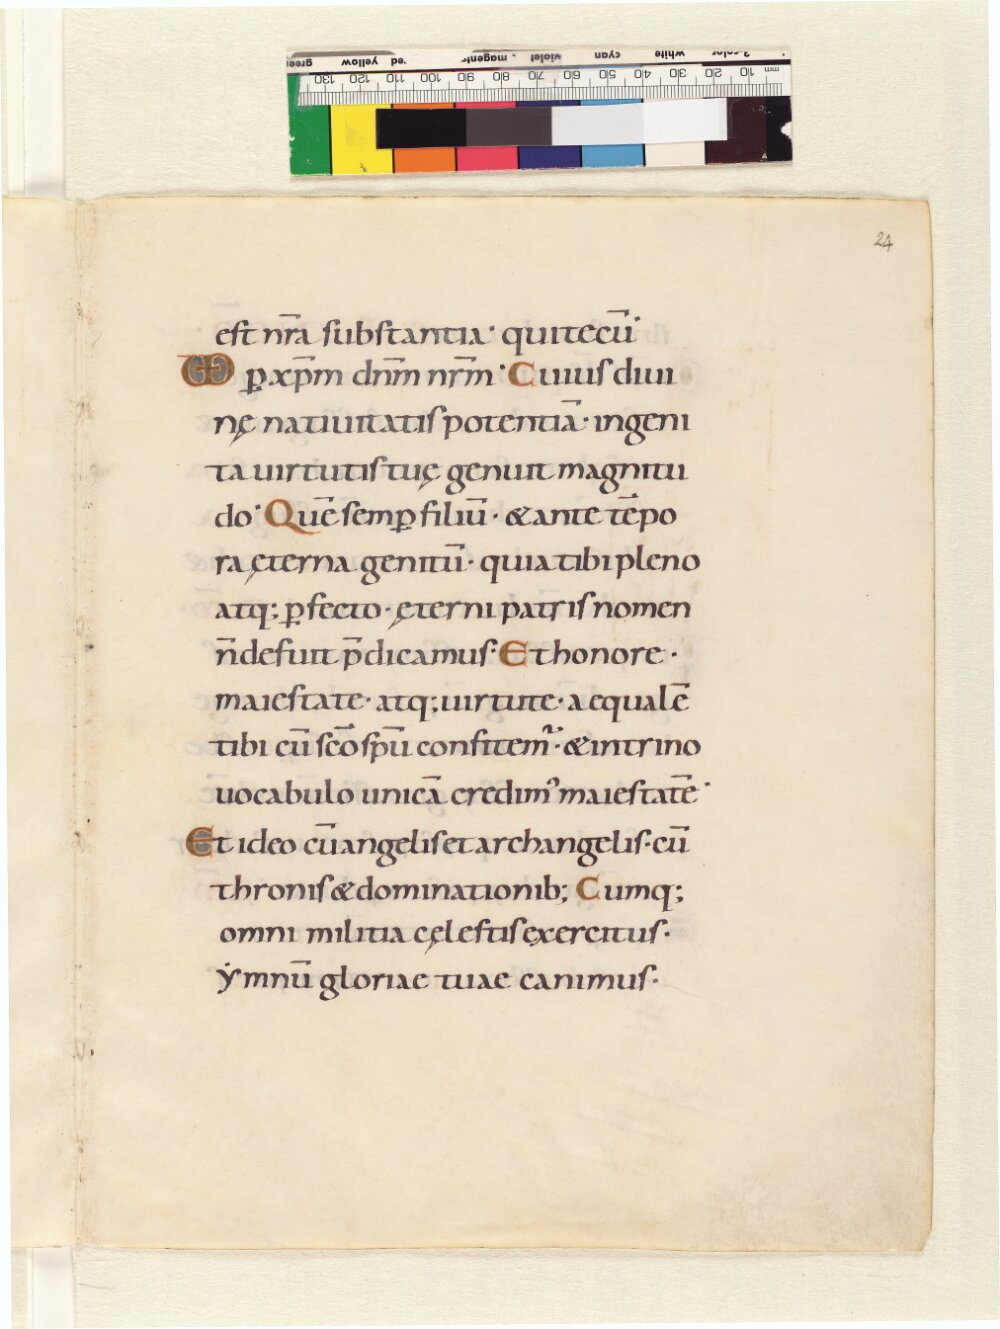 mm 10 20 30 40 50 60 70 80 90 100 110 120 130
24
est nr̄a substantia· qui tecū·
ꝑ xp̄m dnm̄ nrm̄· Cuius diui
nę natiuitatis potentiā· ingeni
ta uirtutis tuę genuit magnitu
do· Quē semꝑ filiū· & ante tēpo
ra ęterna genitū· quia tibi pleno
atq; ꝑfecto· ęterni patris nomen
n̄ defuit p̄dicamus· Et honore·
maiestate· atq; uirtute· aequalē
tibi cū sc̄o sp̄u confitem᷑· & in trino
uocabulo unicā credim᾽ maiestatē·
Et ideo cū angelis et archangelis· cū
thronis & dominationib; Cumq;
omni militia cęlestis exercitus·
ẏmnū gloriae tuae canimus·